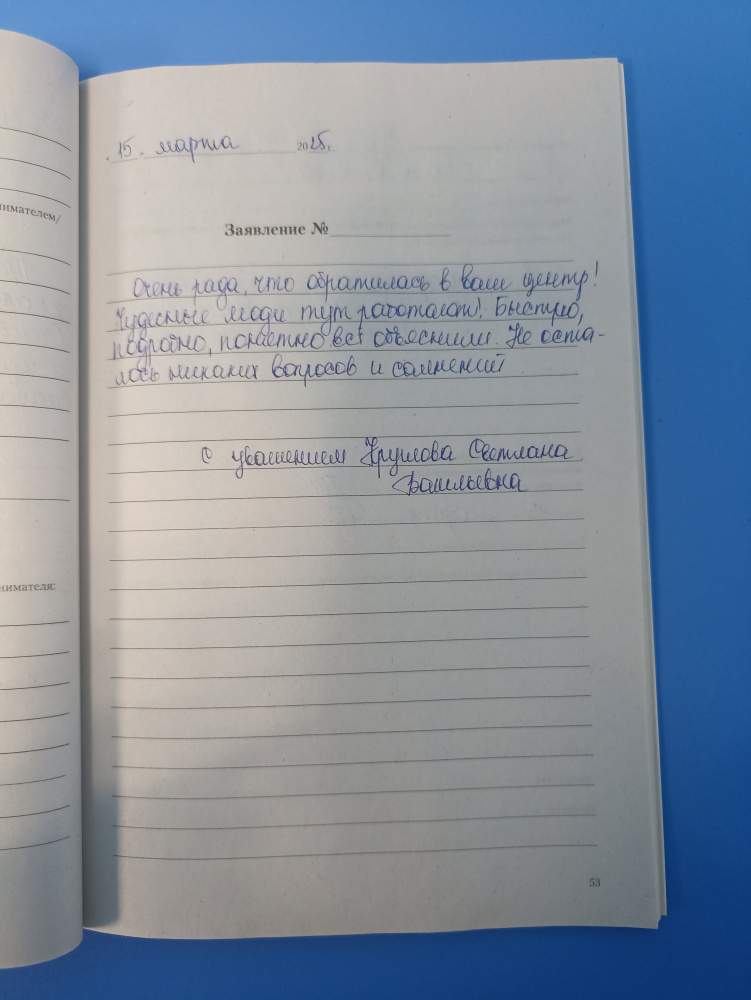 15 марта 2025г.
нимателем/
Заявление №
Очень рада, что обратилась в ваш центр!
Чудесные люди тут работают! Быстро,
подробно, понятно всё объяснили. Не оста-
лось никаких вопросов и сомнений
С уважением Круглова Светлана
Васильевна
нимателя:
53